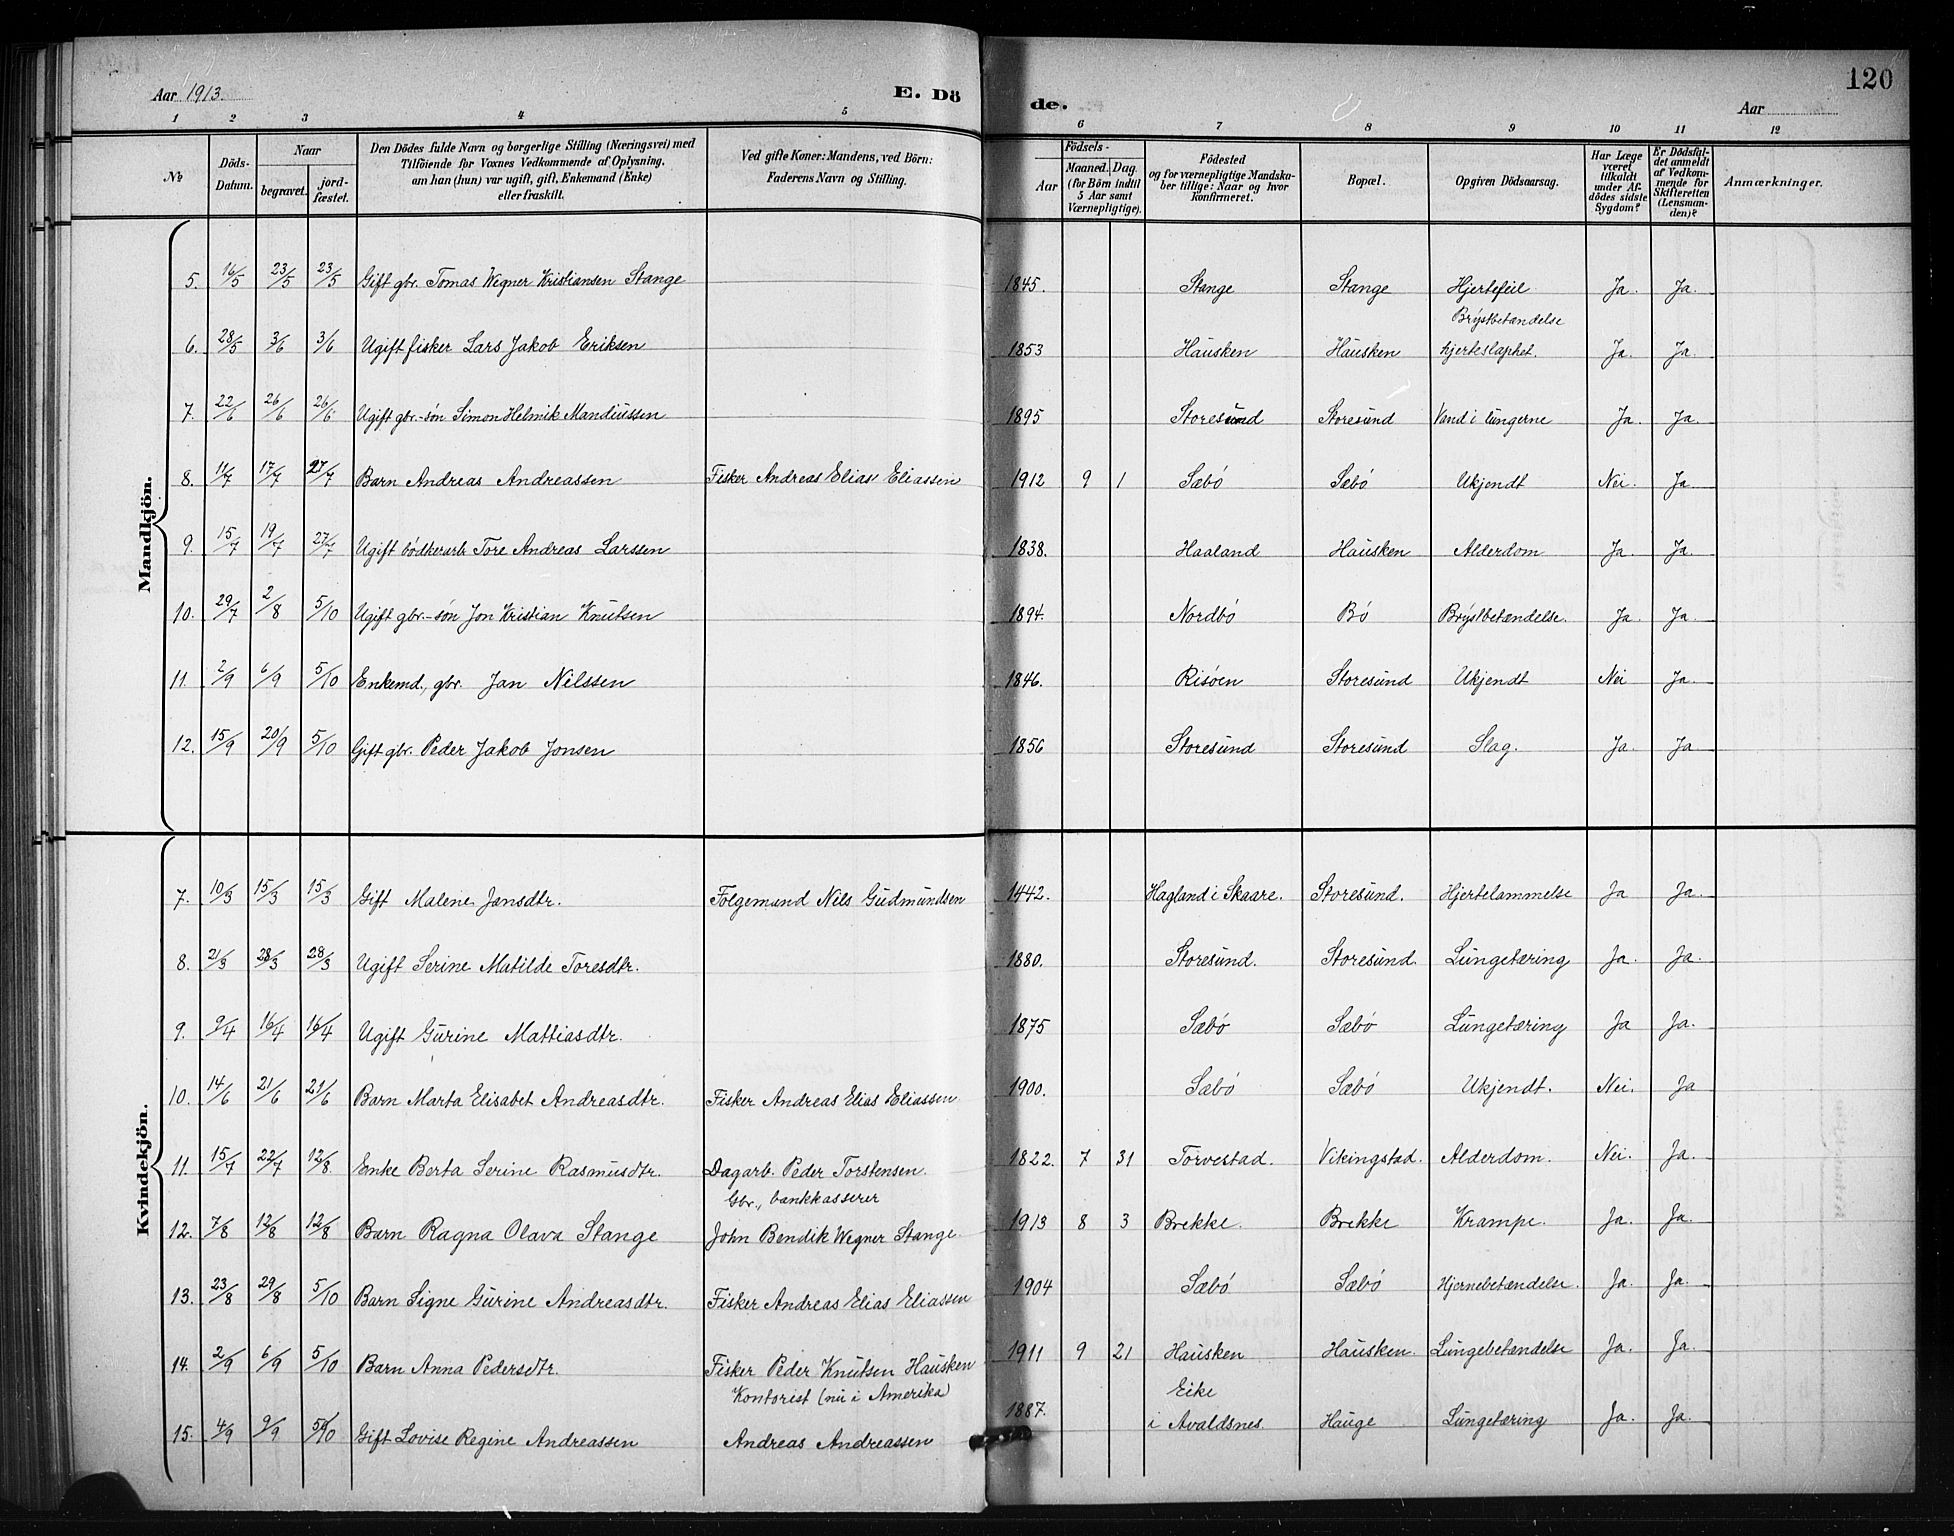 120
Aar 1913.
E. Dö
de.
Aar
1 2 3 4 5 6 7 8 9 10 11 12
№
Döds-Datum.
Naar
begravet.
jordfæstet.
Den Dödes fulde Navn og borgerlige Stilling (Næringsvei) med
Tilföiende for Voxnes Vedkommende af Oplysning,
om han (hun) var ugift, gift, Enkemand (Enke)
eller fraskilt.
Ved gifte Koner: Mandens, ved Börn:
Faderens Navn og Stilling.
Födsels-
Aar
Maaned. Dag.
(for Börn indtil
5 Aar samt
Værnepligtige).
Födested
og for værnepligtige Mandskaber tillige: Naar og hvor
konfirmeret.
Bopæl.
Opgiven Dödsaarsag.
Har Læge
været
tilkaldt
under Afdödes sidste
Sygdom?
Er Dödsfaldet anmeldt
af Vedkommende for
Skifteretten
(Lensmanden)?
Anmærkninger.
Mandkjön.
5. 16/5 23/5 23/5 Gift gbr. Tomas Wegner Kristiansen Stange 1845. Stange Stange Hjertefeil Ja. Ja.
6. 28/5 3/6 3/6 Ugift fisker Lars Jakob Eriksen 1853 Hausken Hausken Brystbetændelse hjerteslaphet. Ja. Ja.
7. 22/6 26/6 26/6 Ugift gbr.-søn Simon Helmik Mandiussen 1895 Storesund Storesund Vand i lungerne Ja. Ja.
8. 11/7 17/7 27/7 Barn Andreas Andreassen Fisker Andreas Elias Eliassen 1912 9 1 Sæbø Sæbø Ukjendt Nei. Ja
9. 15/7 19/7 27/7 Ugift bødkerarb. Tore Andreas Larssen 1838. Haaland Hausken Alderdom Ja. Ja.
10. 29/7 2/8 5/10 Ugift gbr.-søn Jon Kristian Knutsen 1894. Nordbø Bø Brystbetændelse. Ja. Ja.
11. 2/9 6/9 5/10 Enkemd., gbr. Jan Nilssen 1846. Risøen Storesund Ukjendt Nei Ja.
12. 15/9 20/9 5/10 Gift gbr. Peder Jakob Jonsen 1856 Storesund Storesund Slag. Ja. Ja
Kvindekjön.
7. 10/3 15/3 15/3 Gift Malene Jansdtr. Følgemand Nils Gudmundsen 1442. Hagland i Skaare. Storesund. Hjertelammelse Ja Ja.
8. 21/3 28/3 28/3 Ugift Serine Matilde Toresdtr. 1880. Storesund. Storesund. Lungetæring Ja. Ja.
9. 9/4 16/4 16/4 Ugift Gurine Mattiasdtr. 1875 Sæbø Sæbø Lungetæring Ja Ja.
10. 14/6 21/6 21/6 Barn Marta Elisabet Andreasdtr. Fisker Andreas Elias Eliassen 1900. Sæbø Sæbø Ukjendt. Nei. Ja
11. 15/7 22/7 12/8 Enke Berta Serine Rasmusdtr. Dagarb. Peder Torstensen 1822. 7 31 Torvestad. Vikingstad. Alderdom. Nei. Ja.
12. 7/8 12/8 12/8 Barn Ragna Olava Stange Gbr., bankkasserer John Bendik Wegner Stange. 1913 8 3 Brekke. Brekke Krampe. Ja. Ja.
13. 23/8 29/8 5/10 Barn Signe Gurine Andreasdtr. Fisker Andreas Elias Eliassen 1904 Sæbø Sæbø Hjernebetændelse. Ja. Ja.
14. 2/9 6/9 5/10 Barn Anna Pedersdtr. Fisker Peder Knutsen Hausken 1911 9 21 Hausken Hausken. Lungebetændelse Ja. Ja.
15. 4/9 9/9 5/10 Gift Lovise Regine Andreassen Kontorist (nu i Amerika) Andreas Andreassen 1887. Eike i Avaldsnes. Hauge Lungetæring Ja. Ja.